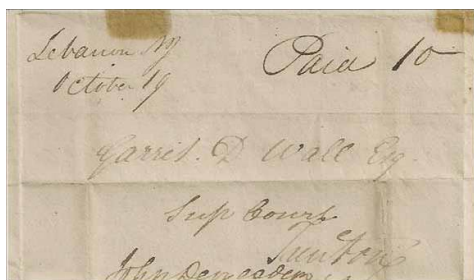 Lebanon NJ
October 19
Paid 10
Garret. D Wall Esq
Sup Court
Trenton
John